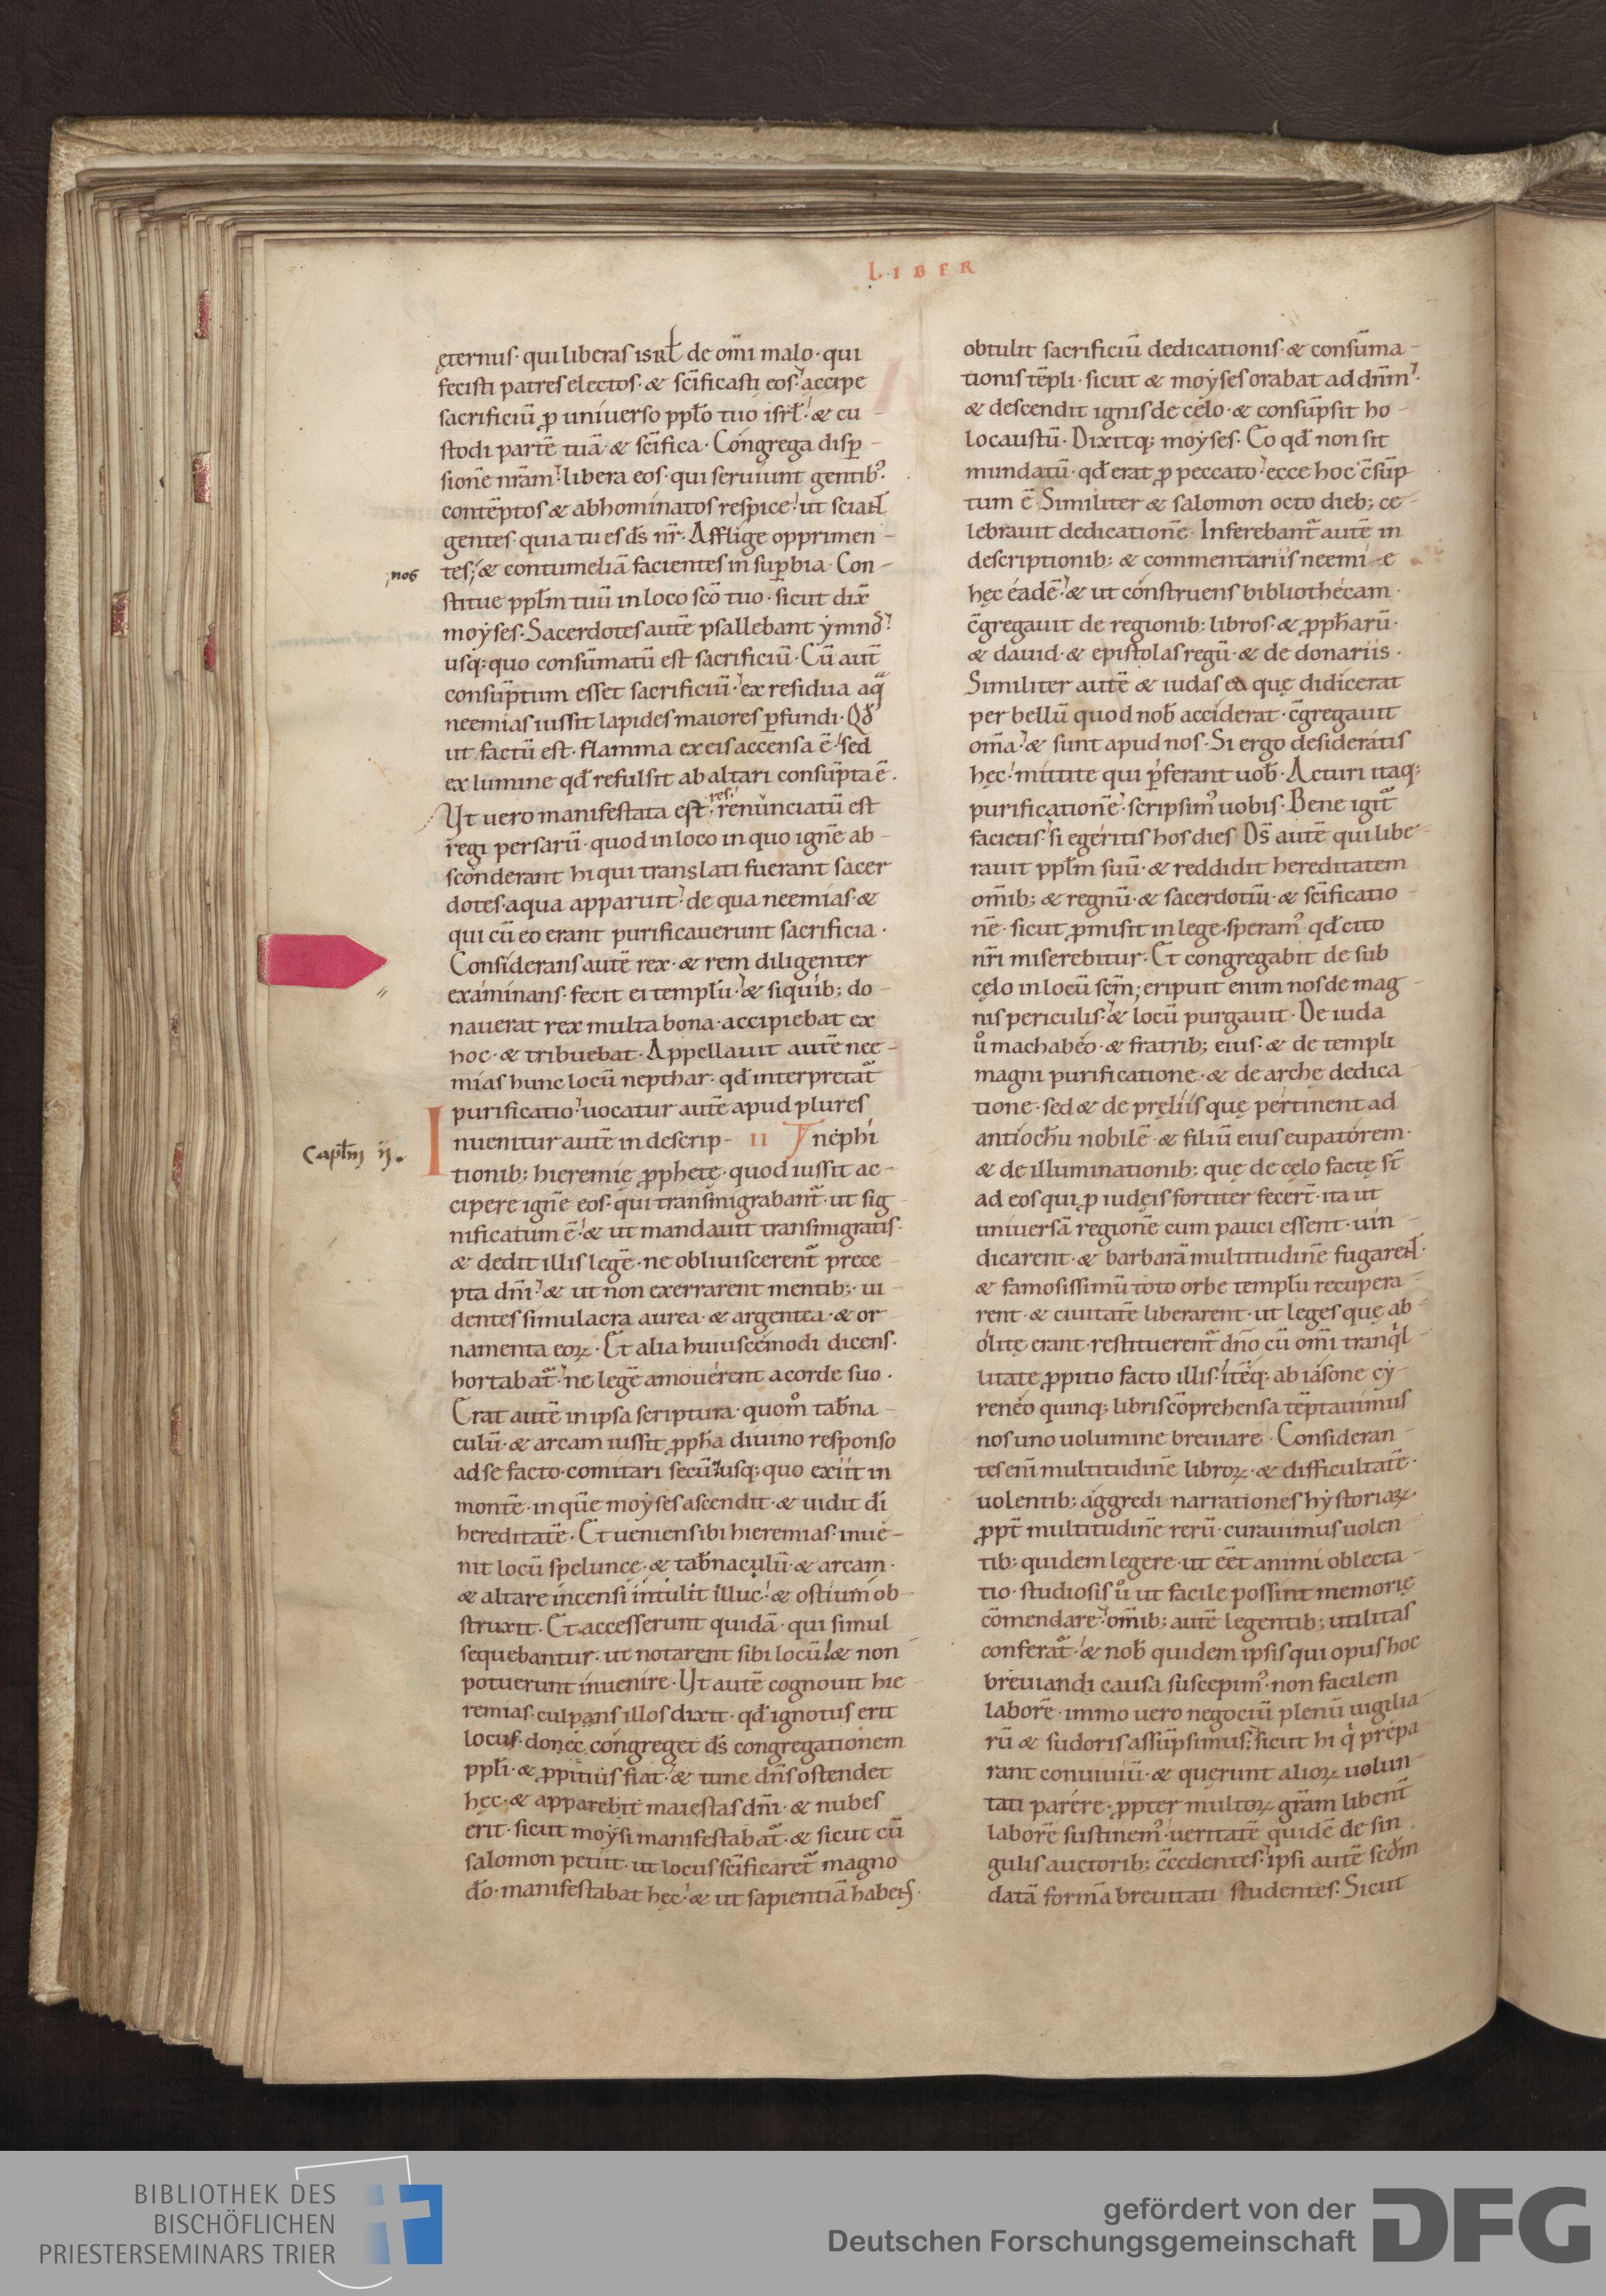 LIBER
ęternus· qui liberas isrl̄ de om̄i malo· qui
fecisti patres electos· & sc̄ificasti eos· accipe
sacrificiū ꝓ uniuerso ppl̄o tuo isrl̄· & cu-
stodi partē tuā· & sc̄ifica· Congrega disꝑ-
sionē nr̄am· libera eos· qui seruiunt gentib;
contēptos & abhominatos respice· ut sciant
gentes· quia tu es ds̄ nr̄· Afflige opprimen-
nos
tes; & contumeliā facientes in suꝑbia· Con-
stitue ppl̄m tuū in loco sc̄o tuo· sicut dix̄
moẏses· Sacerdotes autē psallebant ẏmnoˢ
usq; quo consūmatū est sacrificiū· Cū aut̄
consūptum esset sacrificiū· ex residua aqᵃ
neemias iussit lapides maiores ꝑfundi· Qđ
ut factū est· flamma ex eis accensa ē· sed
ex lumine qđ refulsit ab altari consūpta ē·
res·
Ut uero manifestata est· renunciatū est
regi persarū· quod in loco in quo ignē ab-
sconderant hi qui translati fuerant sacer
dotes· aqua apparuit· de qua neemias· &
qui cū eo erant purificauerunt sacrificia·
Considerans autē rex· & rem diligenter
examinans· fecit ei templū· & siquib; do-
nauerat rex multa bona· accipiebat ex
hoc· & tribuebat· Appellauit autē nee-
mias hunc locū nepthar· qđ interpretat᷑
purificatio· uocatur autē apud plures
Inuenitur autē in descrip- II nephi
Capłm ij.
tionib; hieremię ꝓphetę· quod iussit ac-
cipere ignē eos· qui transmigrabant᷑· ut sig
nificatum ē· & ut mandauit transmigratis·
& dedit illis legē· ne obliuiscerent᷑ prece
pta dn̄i· & ut non exerrarent mentib;· ui-
dentes simulacra aurea· & argentea· & or
namenta eoꝝ· Et alia huiuscemodi dicens·
hortabat᷑· ne legē amouerent a corde suo·
Erat autē in ipsa scriptura· quom̊ tab̄na-
culū· & arcam iussit ꝓph̄a diuino responso
ad se facto· comitari secū· usq; quo exiit in
montē· in quē moẏses ascendit· & uidit dī
hereditatē· Et ueniens ibi hieremias· inue-
nit locū speluncę· & tab̄naculū· & arcam·
& altare incensi intulit illuc· & ostium ob-
struxit· Et accesserunt quidā· qui simul
sequebantur· ut notarent sibi locū· & non
potuerunt inuenire· Ut autē cognouit hie
remias· culpans illos dixit· qđ ignotus erit
locus· donec congreget ds̄ congregationem
ppl̄i· & ꝓpitius fiat· & tunc dn̄s ostendet
hęc· & apparebit maiestas dn̄i· & nubes
erit· sicut moẏsi manifestabat᷑· & sicut cū
salomon petiit· ut locus sc̄ificaret᷑ magno
dō· manifestabat hęc· & ut sapientiā habens·
obtulit sacrificiū dedicationis· & consūma-
tionis tēpli· sicut & moẏses orabat ad dn̄m·
& descendit ignis de cęlo· & consūpsit ho-
locaustū· Dixitq; moẏses· Eo qđ non sit
mundatū· qđ erat ꝓ peccato· ecce hoc c̄sūp
tum ē· Similiter & salomon octo dieb; ce-
lebrauit dedicationē· Inferebant᷑ autē in
descriptionib; & commentariis neemi-e
hęc eadē· & ut construens bibliothecam·
c̄gregauit de regionib; libros· & ꝓph̄arū·
& dauid· & epistolas regū· & de donariis·
Similiter autē & iudas ea quę didicerat
per bellū quod nob̄ acciderat· c̄gregauit
om̄a· & sunt apud nos· Si ergo desideratis
hęc· mittite qui ꝑferant uob̄· Acturi itaq;
purificationē· scripsimꝰ uobis· Bene igit᷑
facietis· si egeritis hos dies· Ds̄ autē qui libe-
rauit ppl̄m suū· & reddidit hereditatem
om̄ib; & regnū· & sacerdotiū· & sc̄ificatio-
nē· sicut ꝓmisit in lege· speramꝰ qđ cito
nr̄i miserebitur· Et congregabit de sub
cęlo in locū sc̄m; eripuit enim nos de mag-
nis periculis· & locū purgauit· De iuda
ů machabeo· & fratrib; eius· & de templi
magni purificatione· & de arche dedica-
tione· sed & de pręliis quę pertinent ad
antioch̄u nobilē· & filiū eius eupatorem·
& de illuminationib; quę de cęlo factę st̄
ad eos qui ꝓ iudeis fortiter fecer̄t· ita ut
uniuersā regionē cum pauci essent· uin-
dicarent· & barbarā multitudinē fugarent·
& famosissimū toto orbe templū recupera-
rent· & ciuitatē liberarent· ut leges quę ab-
olitę erant· restituerent᷑ dn̄o cū om̄i tranqͥl-
litate ꝓpitio facto illis· itēq; ab iasone cẏ-
reneo quinq; libris cōprehensa tēptauimus
nos uno uolumine breuiare· Consideran-
tes enī multitudinē libroꝝ· & difficultatē·
uolentib; aggredi narrationes hẏstoriaꝝ·
ꝓpt̄ multitudinē rerū· curauimus uolen-
tib; quidem legere· ut eēt animi oblecta-
tio· studiosis ů ut facile possint memorię
cōmendare· om̄ib; autē legentib; utilitas
conferat᷑· & nob̄ quidem ipsis qui opus hoc
breuiandi causa suscepimꝰ· non facilem
laborē· immo uero negociū plenū uigilia-
rū & sudoris assūpsimus· sicut hi qͥ prepa-
rant conuiuiū· & quęrunt alioꝝ uolun-
tati parere· ꝓpter multoꝝ gr̄am libent̄
laborē sustinemꝰ· ueritatē quidē de sin-
gulis auctorib; c̄cedentes· ipsi autē scđm
datā formā breuitati studentes· Sicut
BIBLIOTHEK DES
BISCHÖFLICHEN
PRIESTERSEMINARS TRIER
gefördert von der
Deutschen Forschungsgemeinschaft
DFG